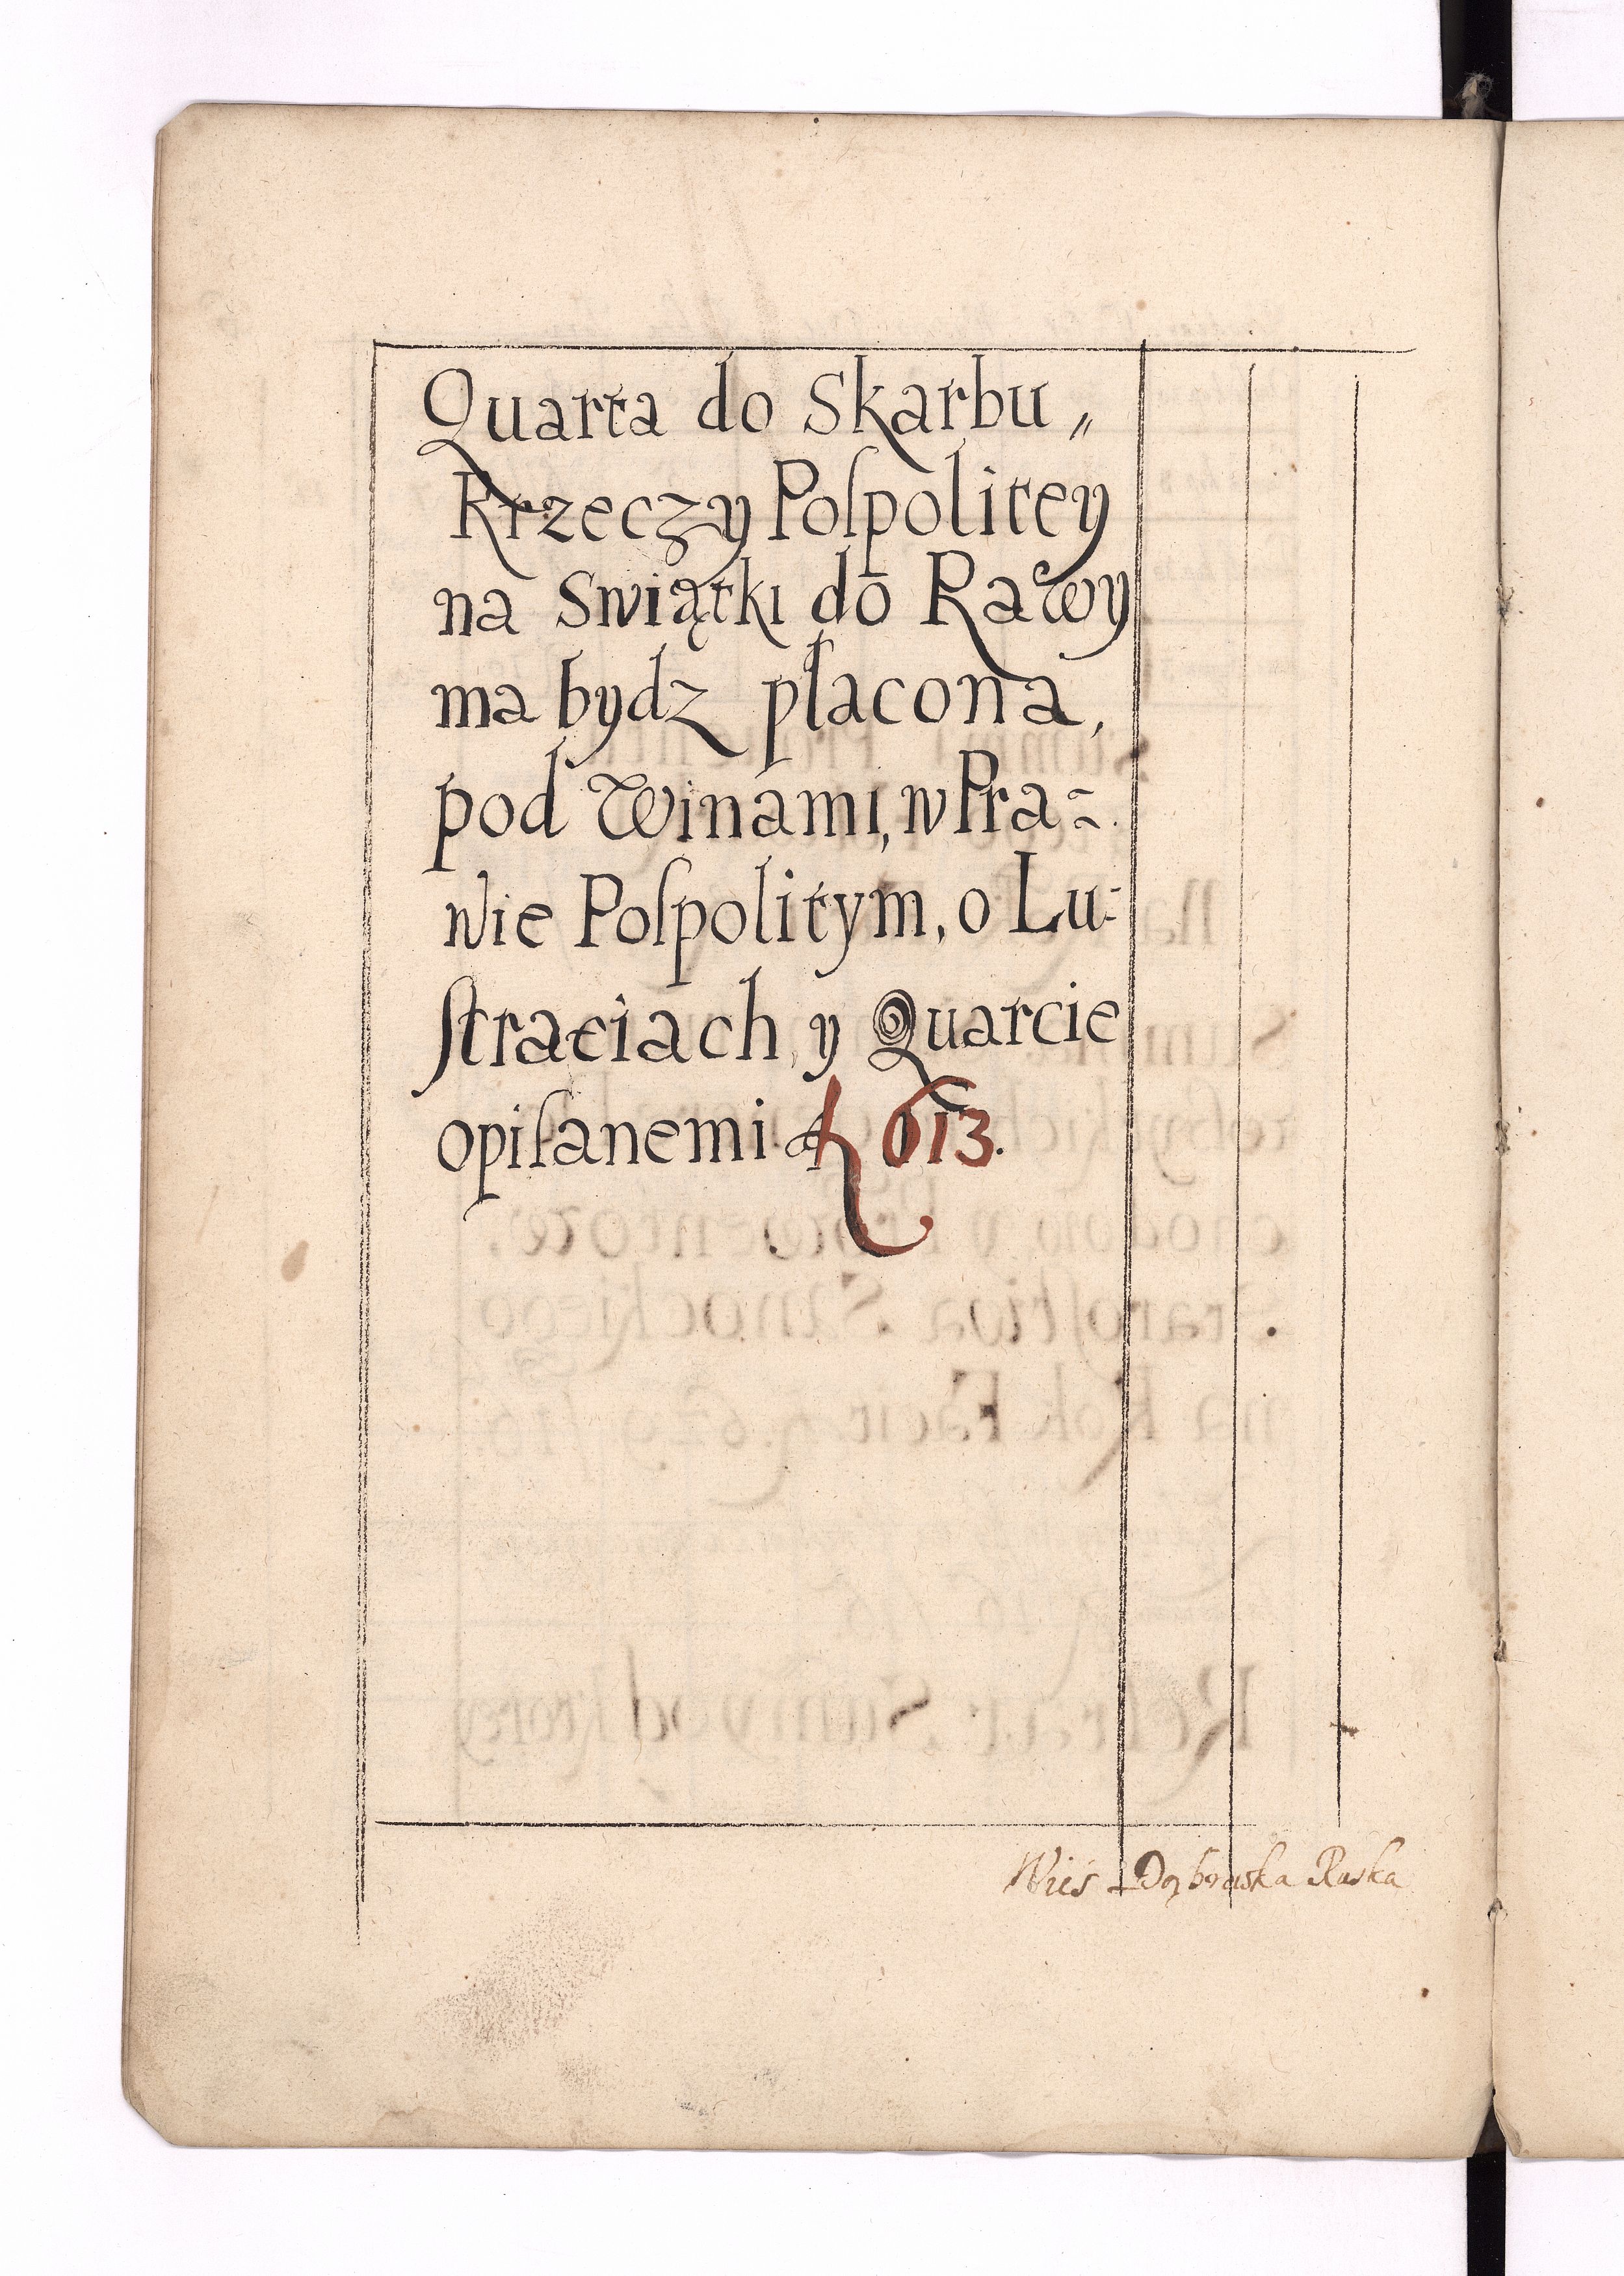 Quarta do Skarbu„
Krzeczy Poſpolitey
na Swiątki do Rawy
ma bydz placona,
pod Winami, w Pra=
wie Poſpolitym, o Lu=
ſtraciach, y Quarcie
opiſanemi 613.
Wieś Dąbrowska Ruska